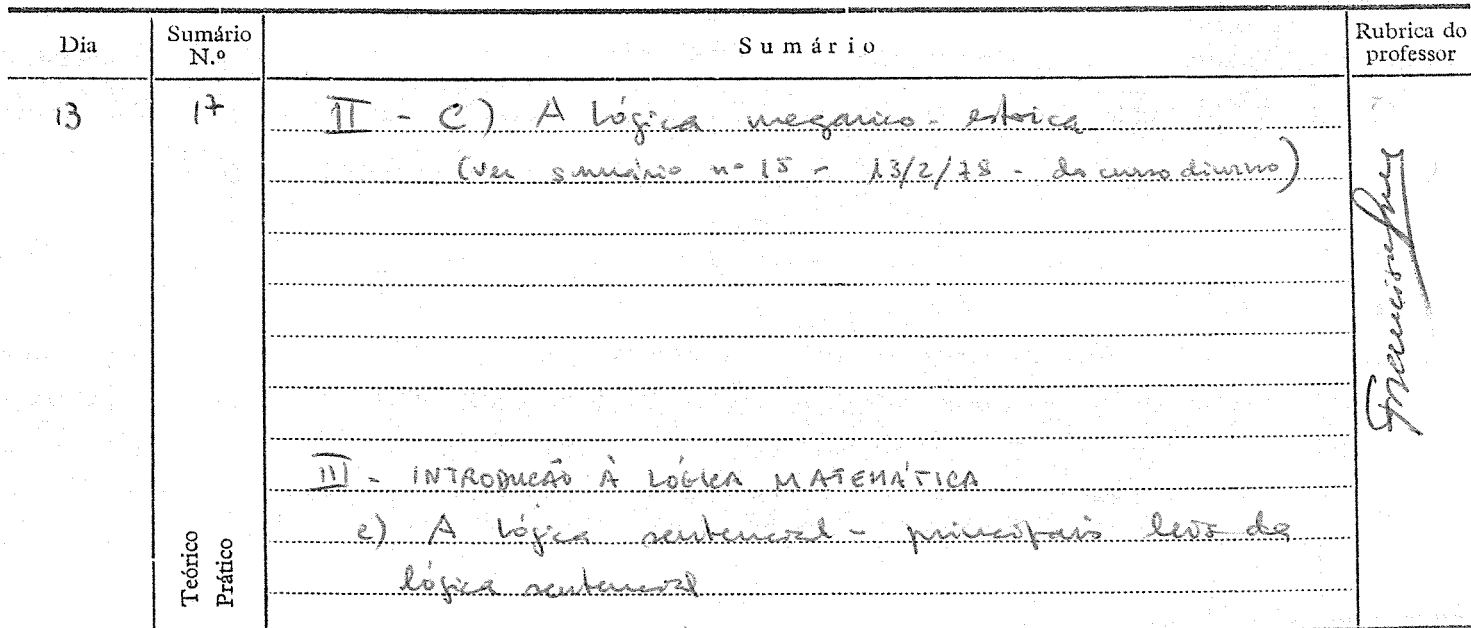 Dia Sumário N.º Sumário Rubrica do professor
13 17 II - C) A lógica megarico-estoica
(ver sumário nº 15 - 13/2/78 - do curso diurno)
III - INTRODUÇÃO À LÓGICA MATEMÁTICA
e) A lógica sentencial - principais leis da
lógica sentencial
Teórico
Prático